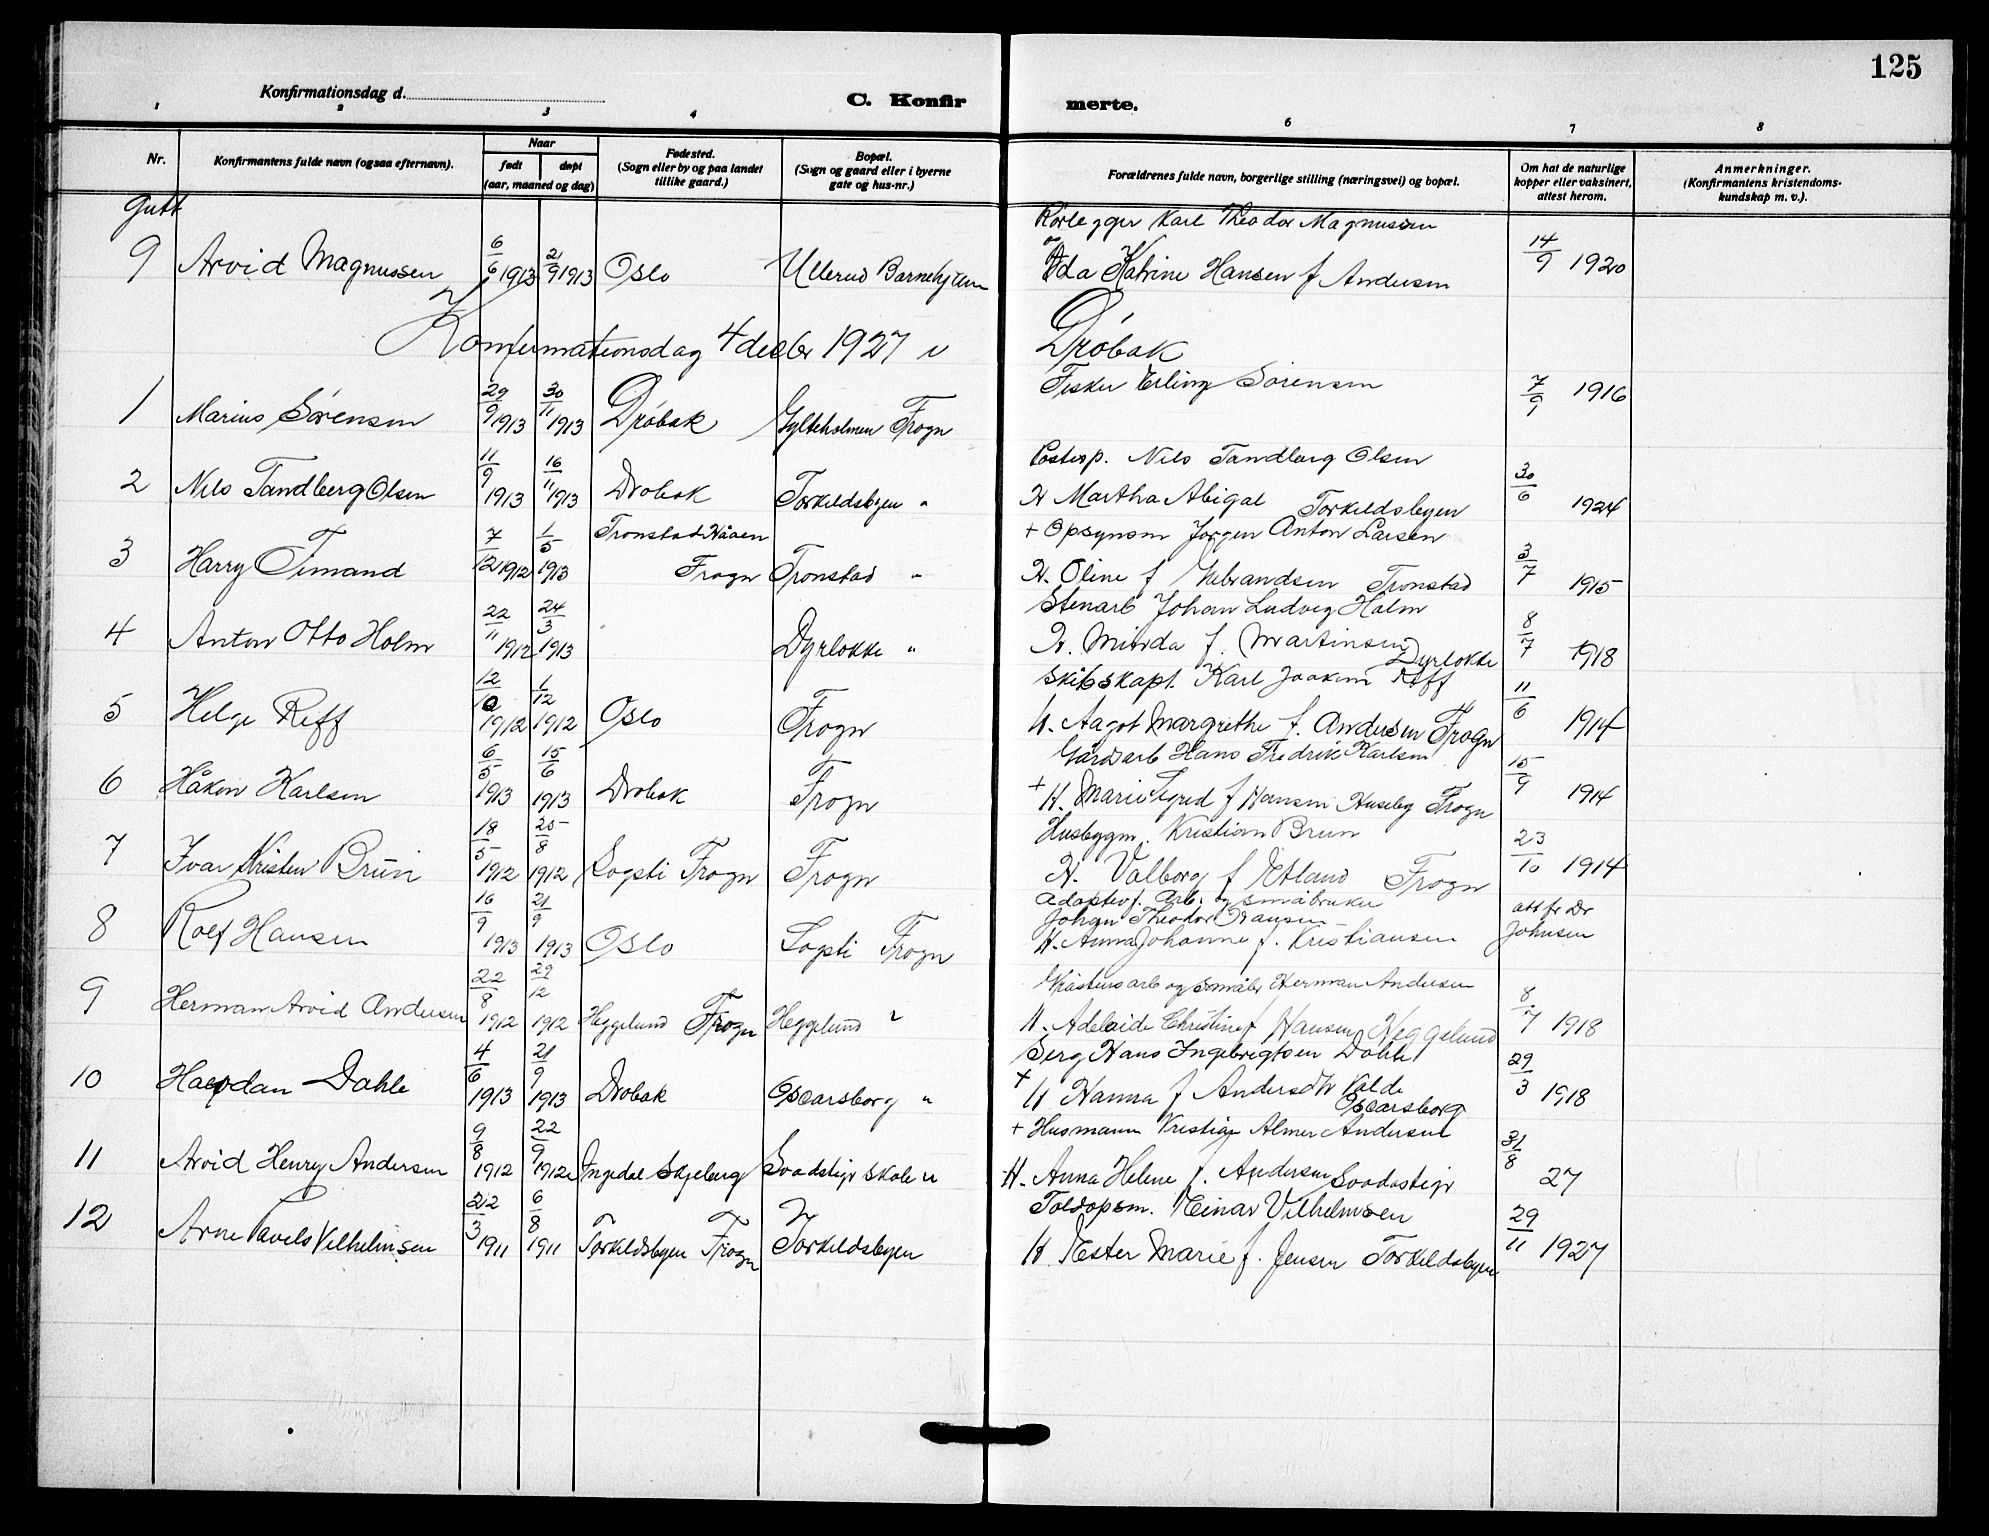 125
Konfirmationsdag d.
C. Konfir merte.
1 2 3 4 6 7 8
Nr. Konfirmantens fulde navn (ogsaa efternavn). Naar født døpt (aar, maaned og dag) Fødested. (Sogn eller by og paa landet tillike gaard.) Bopæl. (Sogn og gaard eller i byerne gate og hus-nr.) Forældrenes fulde navn, borgerlige stilling (næringsvei) og bopæl. Om hat de naturlige kopper eller vaksinert, attest herom. Anmerkninger. (Konfirmantens kristendoms-kundskap m. v.).
Gutt
Rørlegger Karl Theodor Magnussen
9 Arvid Magnussen 6/6 1913 21/9 1913 Oslo Ullerud Barnehjem og Ida Katrine Hansen f Andersen 14/9 1920
Konfirmationsdag 4 decbr 1927 i Drøbak
Fisker Erling Sørensen
1 Marius Sørensen 29/9 1913 30/11 1913 Drøbak Gylteholmen Frogn 7/9 1916
Postexp. Nils Tandberg Olsen
2 Nils Tandberg Olsen 11/9 1913 16/11 1913 Drøbak Torkildsbyen " H Martha Abigal Torkildsbyen 30/6 1924
+ Opsynsm Jørgen Anton Larsen
3 Harry Timand 7/12 1912 1/5 1913 Tronstad Frogn Tronstad " H. Oline f Tronstad 3/7 1915
Stenarb Johan Ludvig Holm
4 Anton Otto Holm 22/11 1912 24/3 1913 Dyrløkke " H. Minda f. Martinsen Dyrløkke 8/7 1918
Skibskapt. Karl Joakim Reff
5 Helge Reff 12/10 1912 1/12 1912 Oslo Frogn H. Aagot Margrethe f. Andersen Frogn 11/6 1914
Gårdarb Hans Fredrik Karlsen
6 Håkon Karlsen 6/5 1913 15/6 1913 Drøbak Frogn + H. Marie f Hansen Huseby Frogn 15/9 1914
Husbygm. Kristian Brun
7 Ivar Kristen Brun 18/5 1912 25/8 1912 Sogsti Frogn Frogn H. Valborg f Etland Frogn 23/10 1914
Adoptivf. Arb. og småbruker
Johan Theodor Hansen
8 Rolf Hansen 16/9 1913 21/9 1913 Oslo Sogsti Frogn H. Anna Johanne f. Kristiansen att fr Dr Johnsen
arb og småbr Herman Andersen
9 Herman Arvid Andersen 22/8 1912 29/12 1912 Heggelund Frogn Heggelund " H. Adelaide Christine f Hansen Heggelund 8/7 1918
Serg Hans Ingebrigtsen Dahle
10 Halvdan Dahle 4/6 1913 21/9 1913 Drøbak Oscarsborg " + H Hanna f Andersdtr Valde Oscarsborg 29/3 1918
+ Husmann Kristian Almer Andersen
11 Arvid Henry Andersen 9/8 1912 22/9 1912 Ingedal Skjeberg skole " H. Anna Helene f. Andersen 31/8 27
Toldopsm. Einar Vilhelmsen
12 Arne Pavels Vilhelmsen 22/3 1911 6/8 1911 Torkildsbyen Frogn Torkildsbyen H Ester Marie f. Jensen Torkildsbyen 29/11 1927